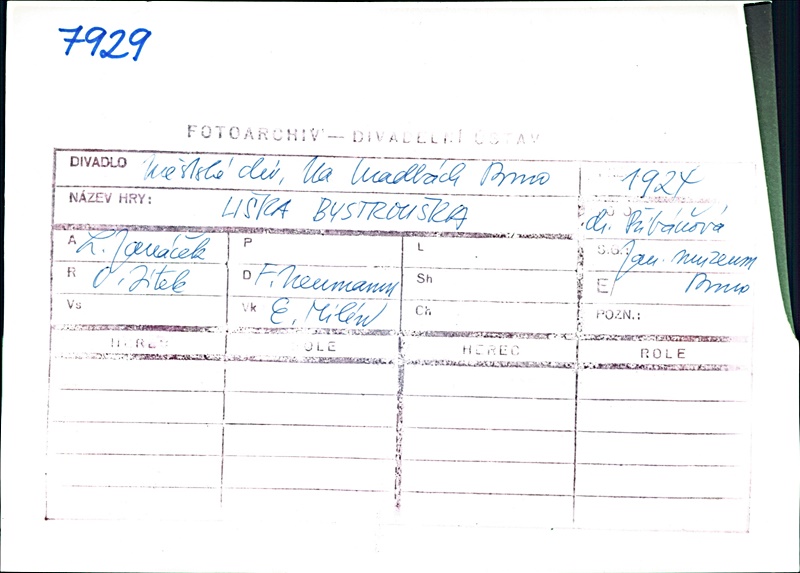 7929
FOTOARCHIV — DIVADELNÍ ÚSTAV
DIVADLO Městské div. Na Hradbách Brno 1924
NÁZEV HRY: LIŠKA BYSTROUŠKA dr. Přibáňová
A L. Janáček P L Jan. muzeum
R O. Zítek D F. Neumann Sh E/ Brno
Vs Vk E. Milén Ch POZN.:
HEREC ROLE HEREC ROLE